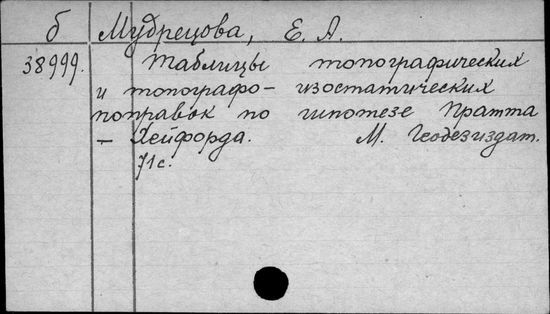 б Мудрецова, Е. А.
38999. Таблицы топографических
и топографо- изостатических
поправок по гипотезе Пратта
- Хейфорда. М. Геодезиздат.
71 с.